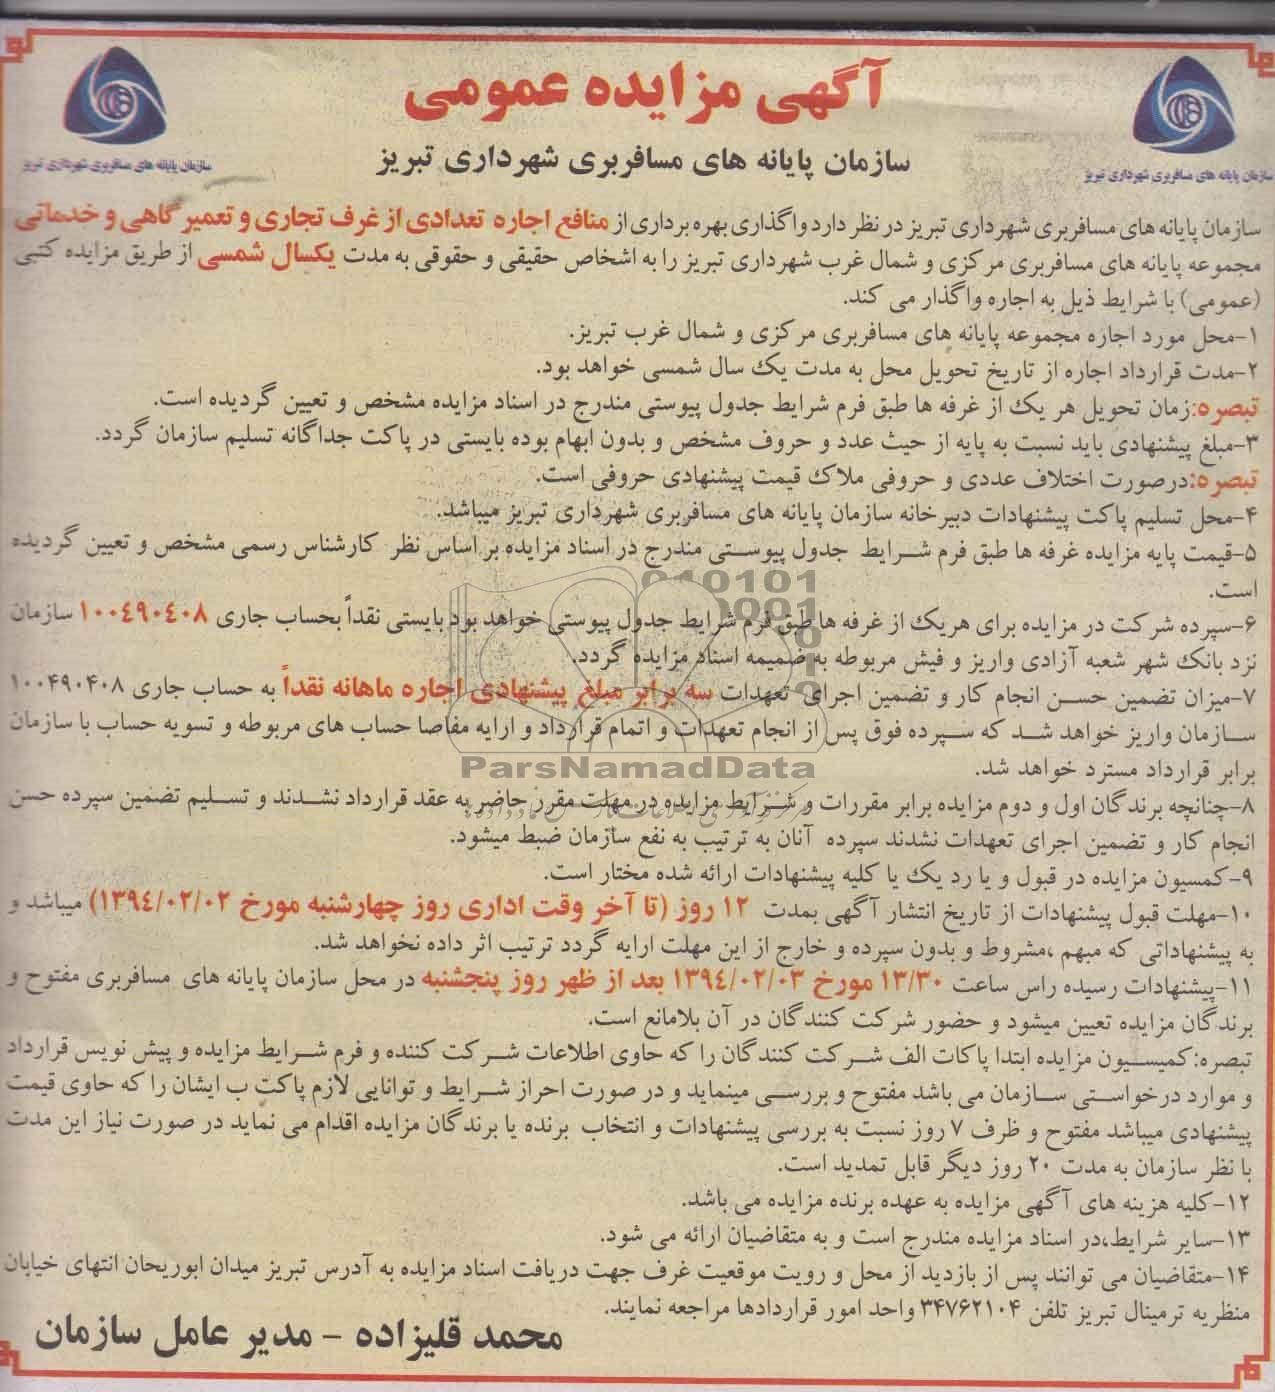 آگهی مزایده عمومی
سازمان پایانه های مسافربری شهرداری تبریز
سازمان پایانه های مسافربری شهرداری تبریز
سازمان پایانه های مسافربری شهرداری تبریز
سازمان پایانه های مسافربری شهرداری تبریز در نظر دارد واگذاری بهره برداری از منافع اجاره تعدادی از غرف تجاری و تعمیر گاهی و خدماتی
مجموعه پایانه های مسافربری مرکزی و شمال غرب شهرداری تبریز را به اشخاص حقیقی و حقوقی به مدت یکسال شمسی از طریق مزایده کتبی
(عمومی) با شرایط ذیل به اجاره واگذار می کند.
۱-محل مورد اجاره مجموعه پایانه های مسافربری مرکزی و شمال غرب تبریز.
۲-مدت قرارداد اجاره از تاریخ تحویل محل به مدت یک سال شمسی خواهد بود.
تبصره:زمان تحویل هر یک از غرفه ها طبق فرم شرایط جدول پیوستی مندرج در اسناد مزایده مشخص و تعیین گردیده است.
۳-مبلغ پیشنهادی باید نسبت به پایه از حیث عدد و حروف مشخص و بدون ابهام بوده بایستی در پاکت جداگانه تسلیم سازمان گردد.
تبصره:درصورت اختلاف عددی و حروفی ملاک قیمت پیشنهادی حروفی است.
۴-محل تسلیم پاکت پیشنهادات دبیرخانه سازمان پایانه های مسافربری شهرداری تبریز میباشد.
۵-قیمت پایه مزایده غرفه ها طبق فرم شرایط جدول پیوستی مندرج در اسناد مزایده بر اساس نظر کارشناس رسمی مشخص و تعیین گردیده
است.
۶-سپرده شرکت در مزایده برای هریک از غرفه ها طبق فرم شرایط جدول پیوستی خواهد بود بایستی نقداً بحساب جاری ۱۰۰۴۹۰۴۰۸ سازمان
نزد بانک شهر شعبه آزادی واریز و فیش مربوطه به ضمیمه اسناد مزایده گردد.
۷-میزان تضمین حسن انجام کار و تضمین اجرای تعهدات سه برابر مبلغ پیشنهادی اجاره ماهانه نقداً به حساب جاری ۱۰۰۴۹۰۴۰۸
سازمان واریز خواهد شد که سپرده فوق پس از انجام تعهدات و اتمام قرارداد و ارایه مفاصا حساب های مربوطه و تسویه حساب با سازمان
برابر قرارداد مسترد خواهد شد.
۸-چنانچه برندگان اول و دوم مزایده برابر مقررات و شرایط مزایده در مهلت مقرر حاضر به عقد قرارداد نشدند و تسلیم تضمین سپرده حسن
انجام کار و تضمین اجرای تعهدات نشدند سپرده آنان به ترتیب به نفع سازمان ضبط میشود.
۹-کمسیون مزایده در قبول و یا رد یک یا کلیه پیشنهادات ارائه شده مختار است.
۱۰-مهلت قبول پیشنهادات از تاریخ انتشار آگهی بمدت ۱۲ روز (تا آخر وقت اداری روز چهارشنبه مورخ ۱۳۹۴/۰۲/۰۲) میباشد و
به پیشنهاداتی که مبهم ،مشروط و بدون سپرده و خارج از این مهلت ارایه گردد ترتیب اثر داده نخواهد شد.
۱۱-پیشنهادات رسیده راس ساعت ۱۳/۳۰ مورخ ۱۳۹۴/۰۲/۰۳ بعد از ظهر روز پنجشنبه در محل سازمان پایانه های مسافربری مفتوح و
برندگان مزایده تعیین میشود و حضور شرکت کنندگان در آن بلامانع است.
تبصره:کمیسیون مزایده ابتدا پاکات الف شرکت کنندگان را که حاوی اطلاعات شرکت کننده و فرم شرایط مزایده و پیش نویس قرارداد
و موارد درخواستی سازمان می باشد مفتوح و بررسی مینماید و در صورت احراز شرایط و توانایی لازم پاکت ب ایشان را که حاوی قیمت
پیشنهادی میباشد مفتوح و ظرف ۷ روز نسبت به بررسی پیشنهادات و انتخاب برنده یا برندگان مزایده اقدام می نماید در صورت نیاز این مدت
با نظر سازمان به مدت ۲۰ روز دیگر قابل تمدید است.
۱۲-کلیه هزینه های آگهی مزایده به عهده برنده مزایده می باشد.
۱۳-سایر شرایط،در اسناد مزایده مندرج است و به متقاضیان ارائه می شود.
۱۴-متقاضیان می توانند پس از بازدید از محل و رویت موقعیت غرف جهت دریافت اسناد مزایده به آدرس تبریز میدان ابوریحان انتهای خیابان
منظریه ترمینال تبریز تلفن ۳۴۷۶۲۱۰۴ واحد امور قراردادها مراجعه نمایند.
محمد قلیزاده - مدیر عامل سازمان
ParsNamadData